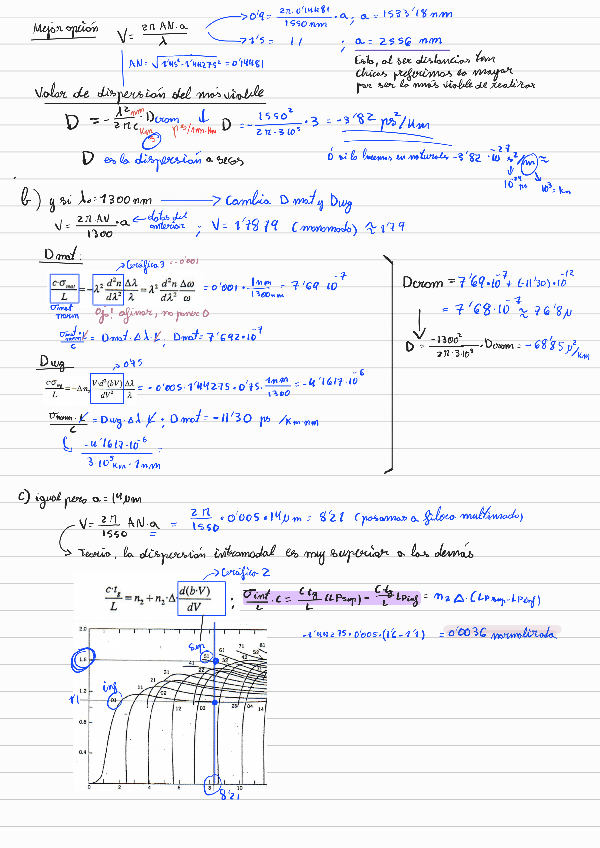 Mejor opción V = 2π·AN·a / λ
→ 0'9 = 2π·0'14481 / 1550 nm · a ; a = 1533'18 nm
→ 1'5 = 11 ; a = 2556 nm
AN = √(1'45² - 1'44275²) = 0'14481
Esto, al ser distancias tan
chicas preferimos la mayor
por ser la más viable de realizar
Valor de dispersión del más viable
D = - λ² / 2πc · Dcrom
nm
km/s
ps/nm·km
D = - 1550² / 2π·3·10⁵ · 3 = -3'82 ps²/km
D es la dispersión a secas
Ó si lo hacemos en naturales -3'82 · 10⁻²⁷ s²/m ≈
10⁻²⁴ ps 10³ = km
b) y si λ₀: 1300 nm → Cambia Dmat y Dwg
V = 2π·AN / 1300 · a ← datos del anterior ; V = 1'7879 (monomodo) ≈ 1'79
Dmat:
Gráfica 3 = -0'001
c·σmat / L = -λ² d²n/dλ² Δλ/λ = λ² d²n/dλ² Δω/ω = 0'001 · 1nm/1300nm = 7'69·10⁻⁷
σmat norm
Ojo! afinar, no poner 0
σmat norm·K / c = Dmat·Δλ·K ; Dmat = 7'692·10⁻⁷
Dwg
0'75
c·σwg / L = -Δn₂ V·d²(bV)/dV² Δλ/λ = -0'005·1'44275·0'75· 1nm/1300 = -4'1617·10⁻⁶
σnorm·K / c = Dwg·Δλ·K ; Dmat = -11'30 ps /km·nm
-4'1617·10⁻⁶ / 3·10⁵ km·1nm =
Dcrom = 7'69·10⁻⁷ + (-11'30)·10⁻¹²
= 7'68·10⁻⁷ ≈ 76'8μ
D = -1300² / 2π·3·10⁵ · Dcrom = -68'85 μ²/km
c) igual pero a = 14μm
V = 2π/1550 AN·a = 2π/1550 · 0'005·14μm = 8'21 (pasamos a fibra multimodo)
→ Teoría, la dispersión intramodal es muy superior a las demás
Gráfica 2
c·tg / L = n₂ + n₂·Δ d(b·V)/dV ; σint/L · c = c tg/L (LPsup) - c tg/L LPinf = n₂ Δ·(LPsup - LPinf)
-1'44275·0'005·(1'6 - 1'1) = 0'0036 normalizada
2.0
1.6
1.2
0.8
0.4
0 2 4 6 8 10 12
sup
inf
8'21